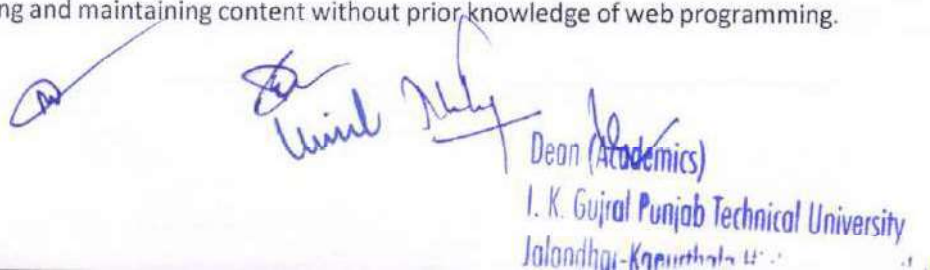 ng and maintaining content without prior knowledge of web programming.
Dean (Academics)
I. K. Gujral Punjab Technical University
Jalandhar-Kapurthala